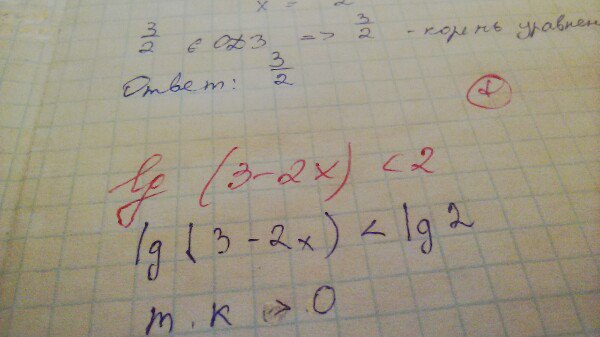 x =
3/2 ∈ ОДЗ => 3/2 - корень уравнен
Ответ: 3/2
lg (3-2x) < 2
lg (3-2x) < lg 2
т.к > 0